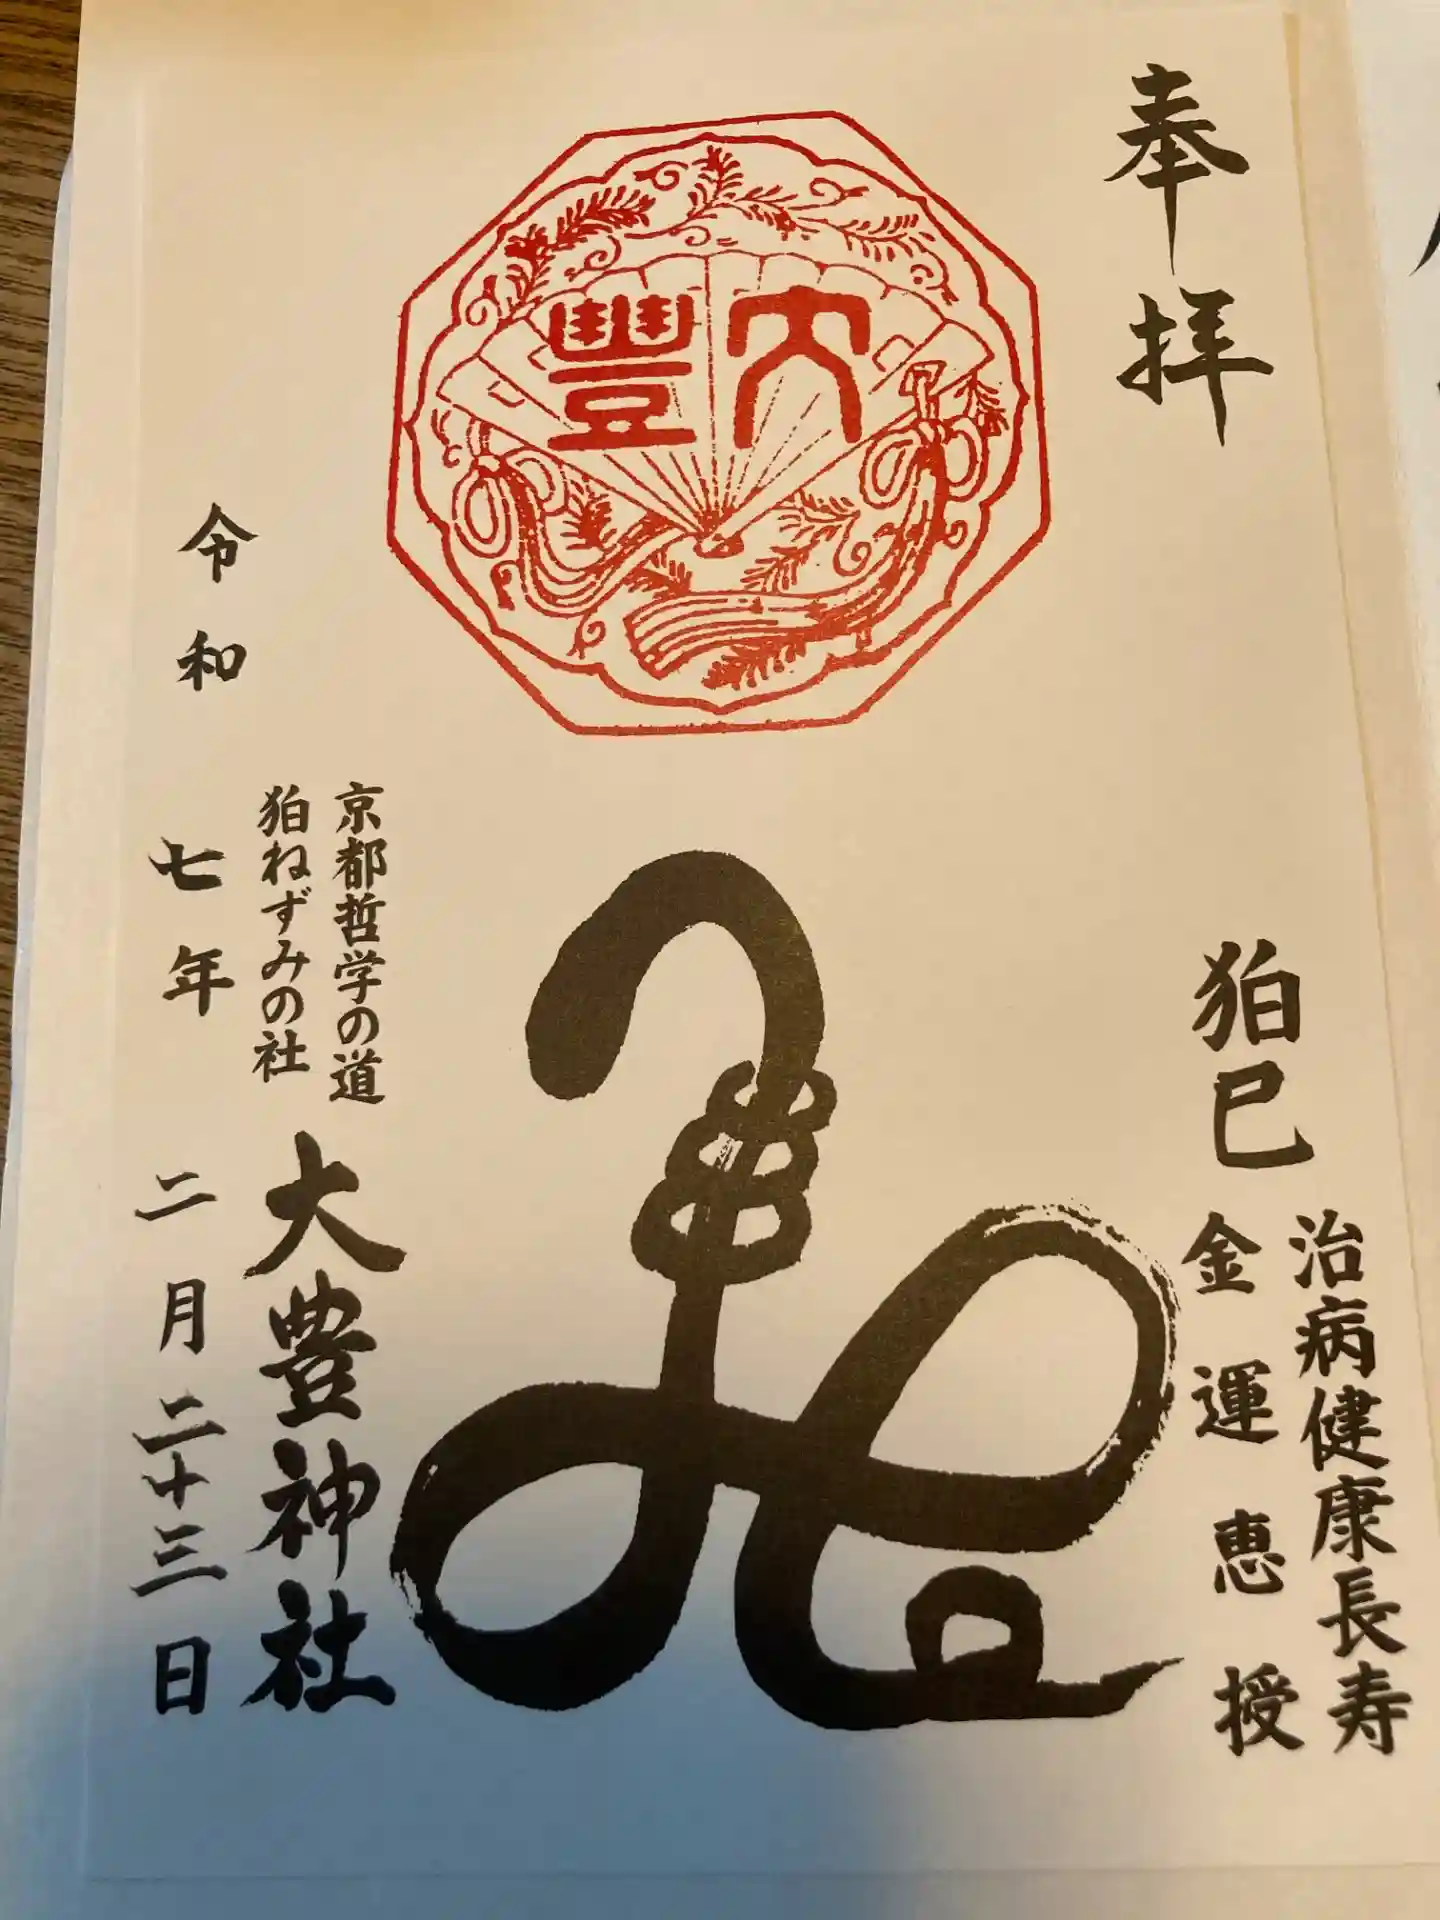 奉拝
大豐
狛巳
治病健康長寿
金運恵授
京都哲学の道
狛ねずみの社
大豊神社
令和七年二月二十三日